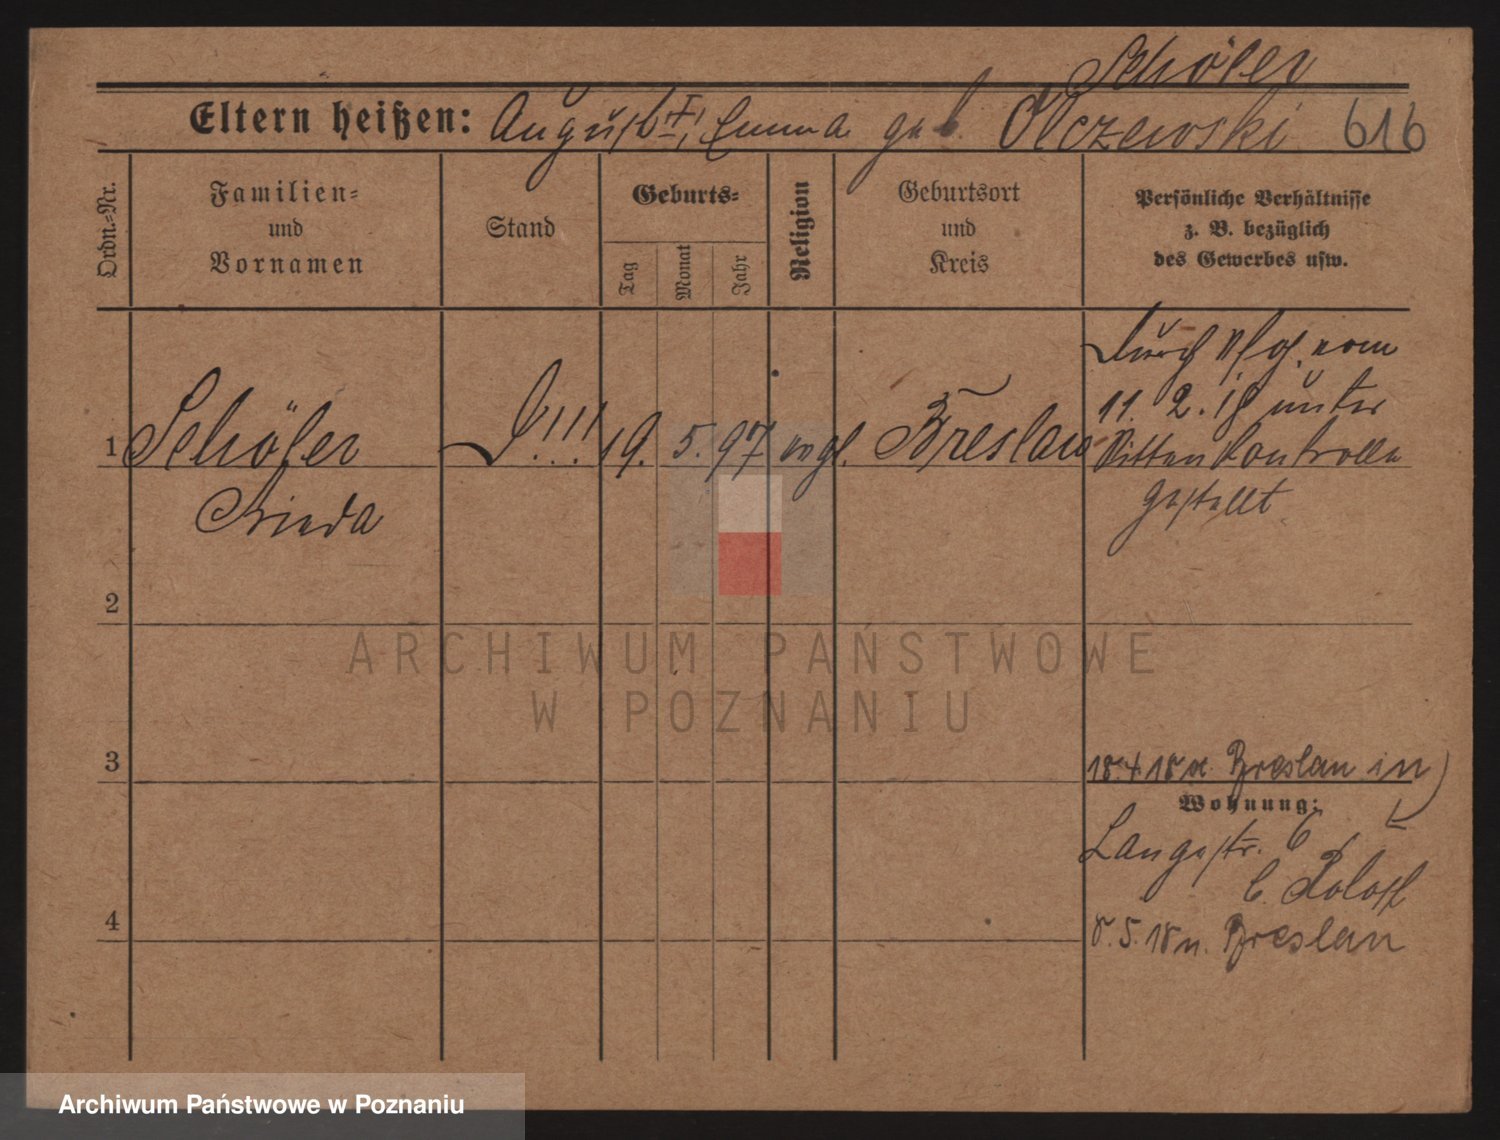 Schöler
Eltern heißen: August †, Emma geb. Olczewski 616
Ordn.-Nr.
Familien-
und
Vornamen
Stand
Geburts-
Tag
Monat
Jahr
Religion
Geburtsort
und
Kreis
Persönliche Verhältnisse
z. B. bezüglich
des Gewerbes usw.
1 Schöler !!! 19. 5. 97 evgl. Breslau
Frieda
Durch vom
11. 2. 18 unter
Sittenkontrolle
gestellt
2
3
18.4.18 a. Breslau in
Wohnung:
Langestr. 6
b.
4
8. 5. 18 n. Breslau
ARCHIWUM PAŃSTWOWE
W POZNANIU
Archiwum Państwowe w Poznaniu